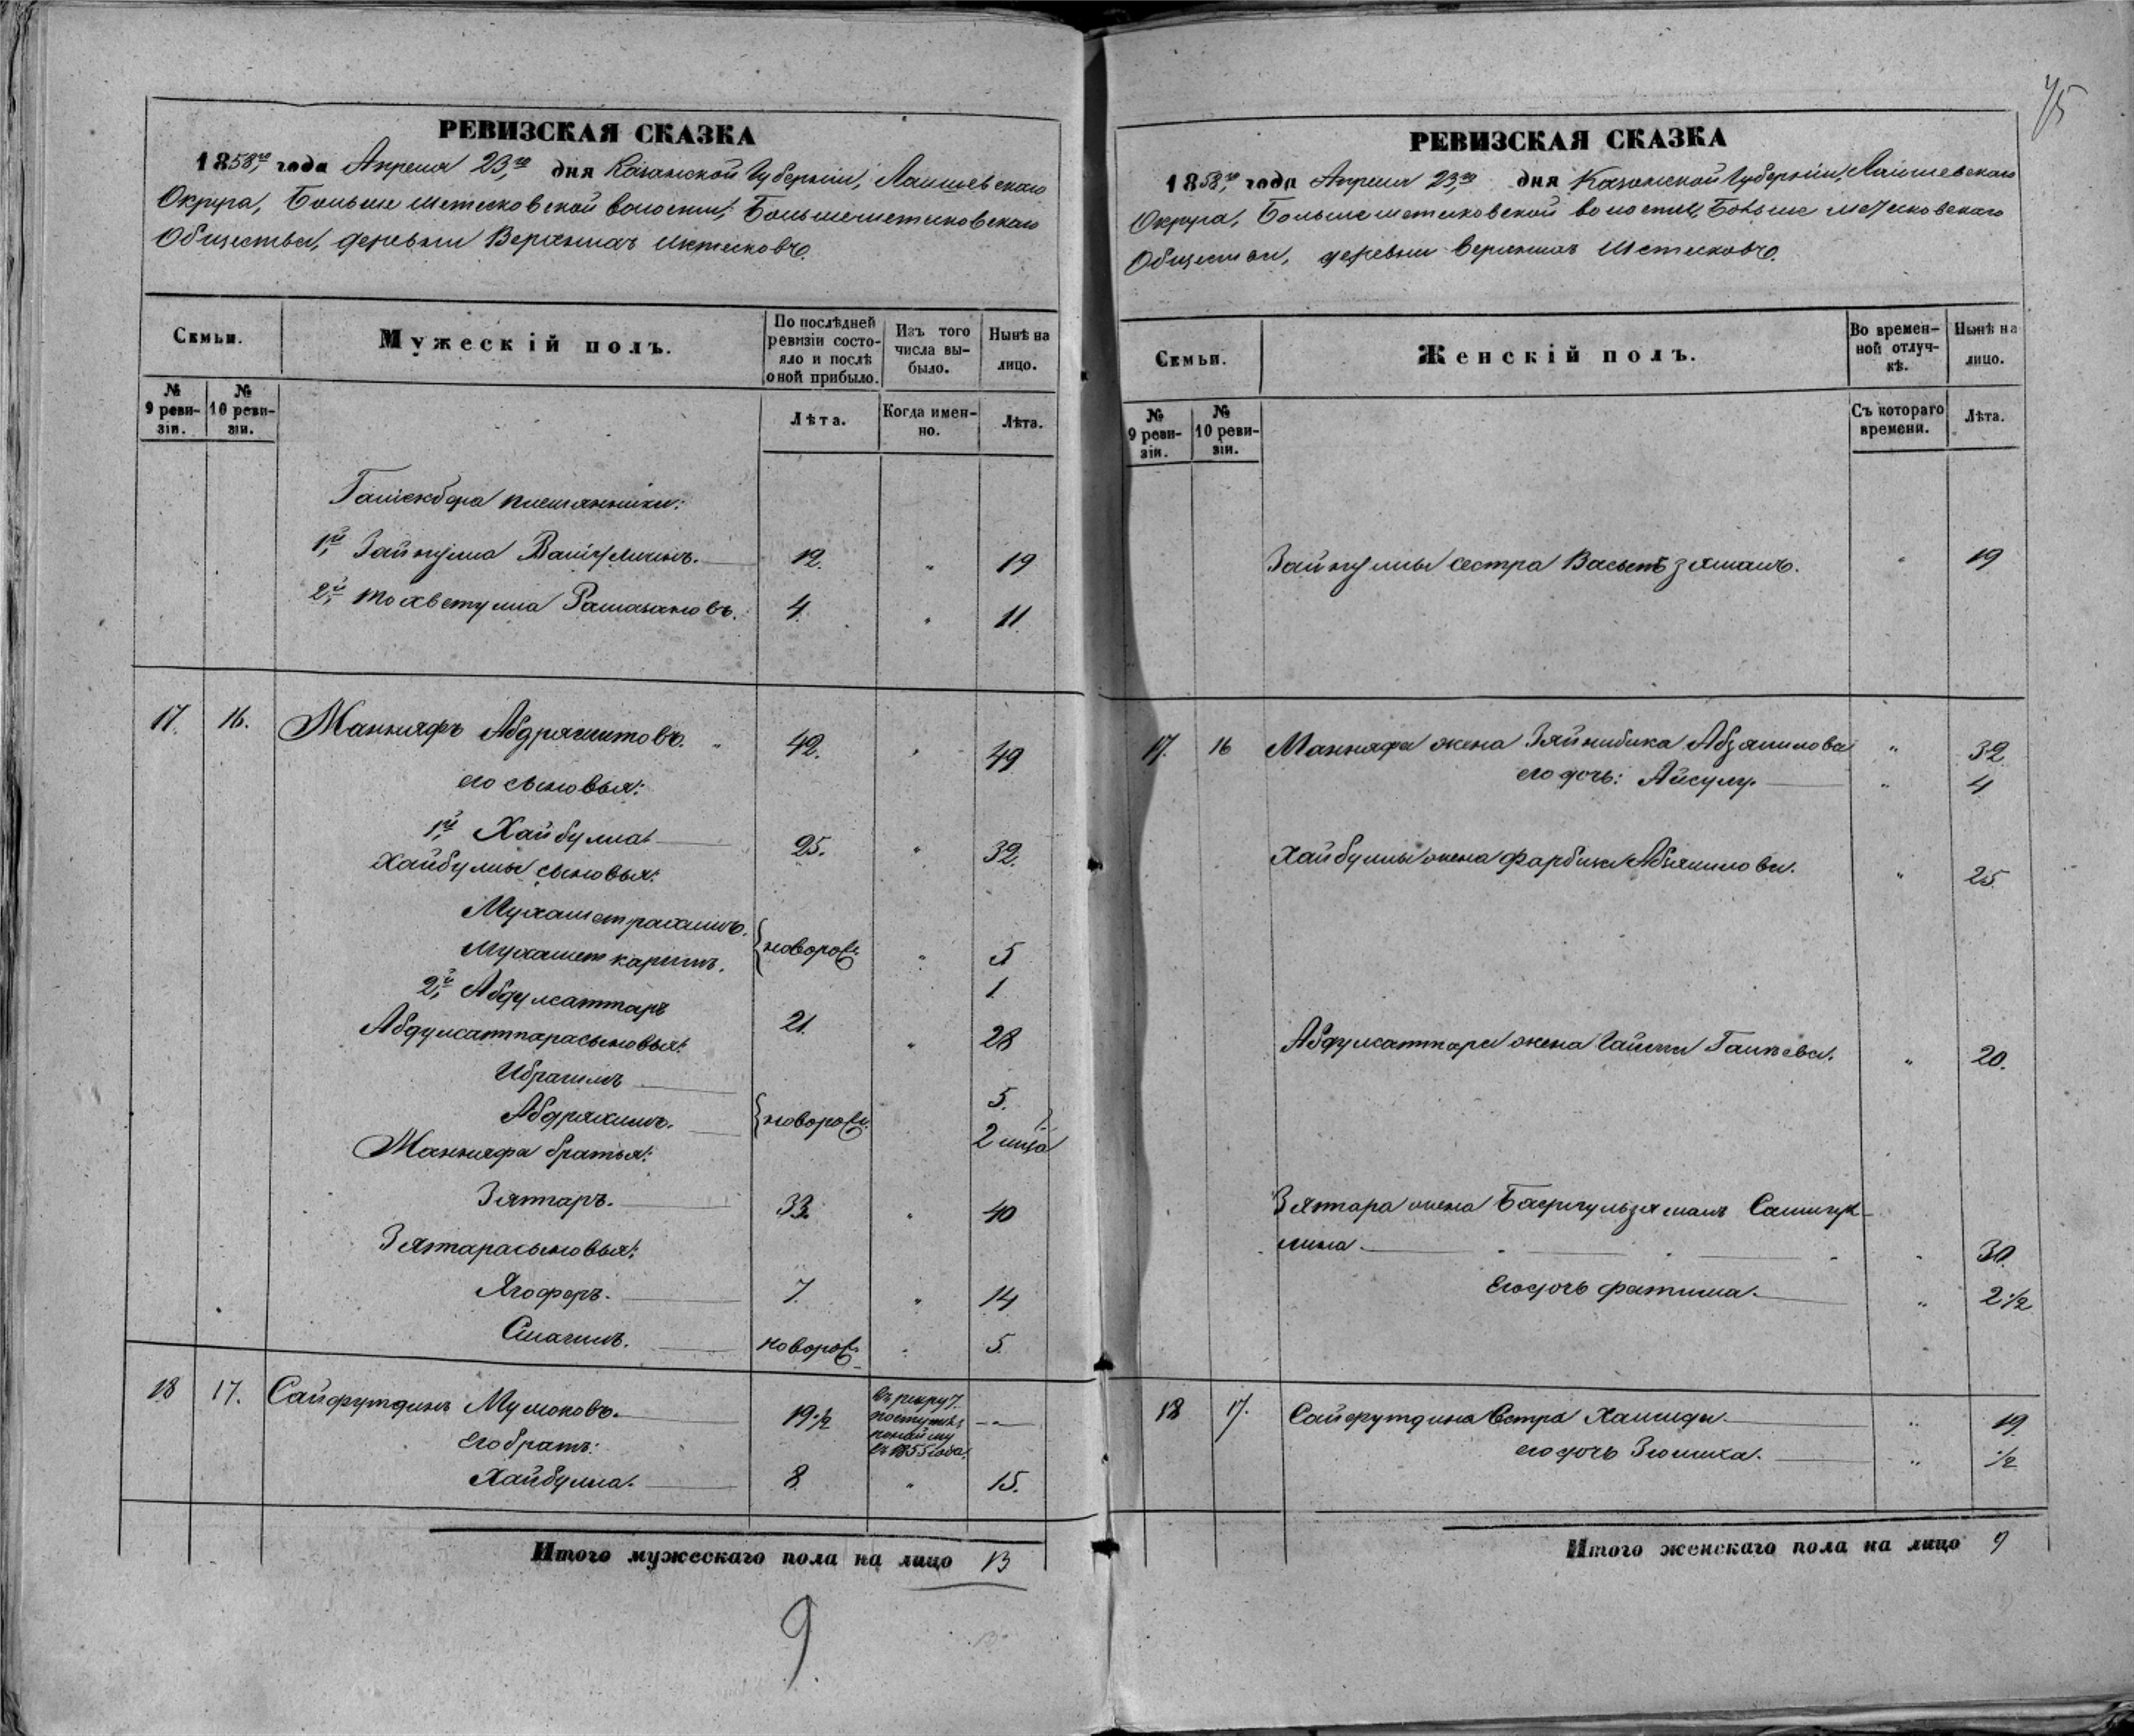 РЕВИЗСКАЯ СКАЗКА
1858,го года Апреля 23,го дня Казанской Губерніи, Лаишевскаго
Округа, Больше метесковской волости, Большеметесковскаго
Общества, деревни Верхнихъ Метесковъ.
Семьи.
Мужескій полъ.
По послѣдней ревизіи состояло и послѣ оной прибыло.
Изъ того числа выбыло.
Нынѣ на лицо.
№ 9 ревизіи.
№ 10 ревизіи.
Лѣта.
Когда именно.
Лѣта.
племянники:
1й Зайнулла 12. " 19
2й Рамазановъ. 4. " 11.
17. 16. Маннафъ Абдряшитовъ. " 42. " 49
его сыновья:
1й Хайбулла 25. " 32.
Хайбуллы сыновья:
Мухаметрахимъ.
Мухамет каримъ. новорож. " 5
1.
2й Абдулсаттаръ 21. " 28
Абдулсаттара сыновья:
Ибрагимъ 5.
Абдряхимъ. новорож. 2 мца
Маннафа братья:
Зяттаръ. 33. " 40
Зяттара сыновья:
Ягоферъ. 7. " 14
Смагилъ. новорож. " 5.
18 17. Сайфутдинъ 19½ въ рекрут. поступилъ по найму въ 1855 года. —
Его братъ:
Хайбулла. 8 " 15.
Итого мужескаго пола на лицо 13
9
75
РЕВИЗСКАЯ СКАЗКА
1858,го года Апреля 23,го дня Казанской Губерніи, Лаишевскаго
Округа, Большеметесковской волости, Больше метесковскаго
Общества, деревни Верхнихъ Метесковъ.
Семьи.
Женскій полъ.
Во временной отлучкѣ.
Нынѣ на лицо.
№ 9 ревизіи.
№ 10 ревизіи.
Съ котораго времени.
Лѣта.
Зайнуллы сестра " 19
17. 16 Маннафа жена Зяйнибика Абзялилова " 32
его дочь: Айсулу. " 4
Хайбуллы жена Фарбика Абзялилова. " 25.
Абдулсаттара жена Гайша " 20.
Зяттара жена
" 30.
Его дочь Фатима. " 2½
18 17. Сайфутдина Сестра " 19
его дочь " ½
Итого женскаго пола на лицо 9